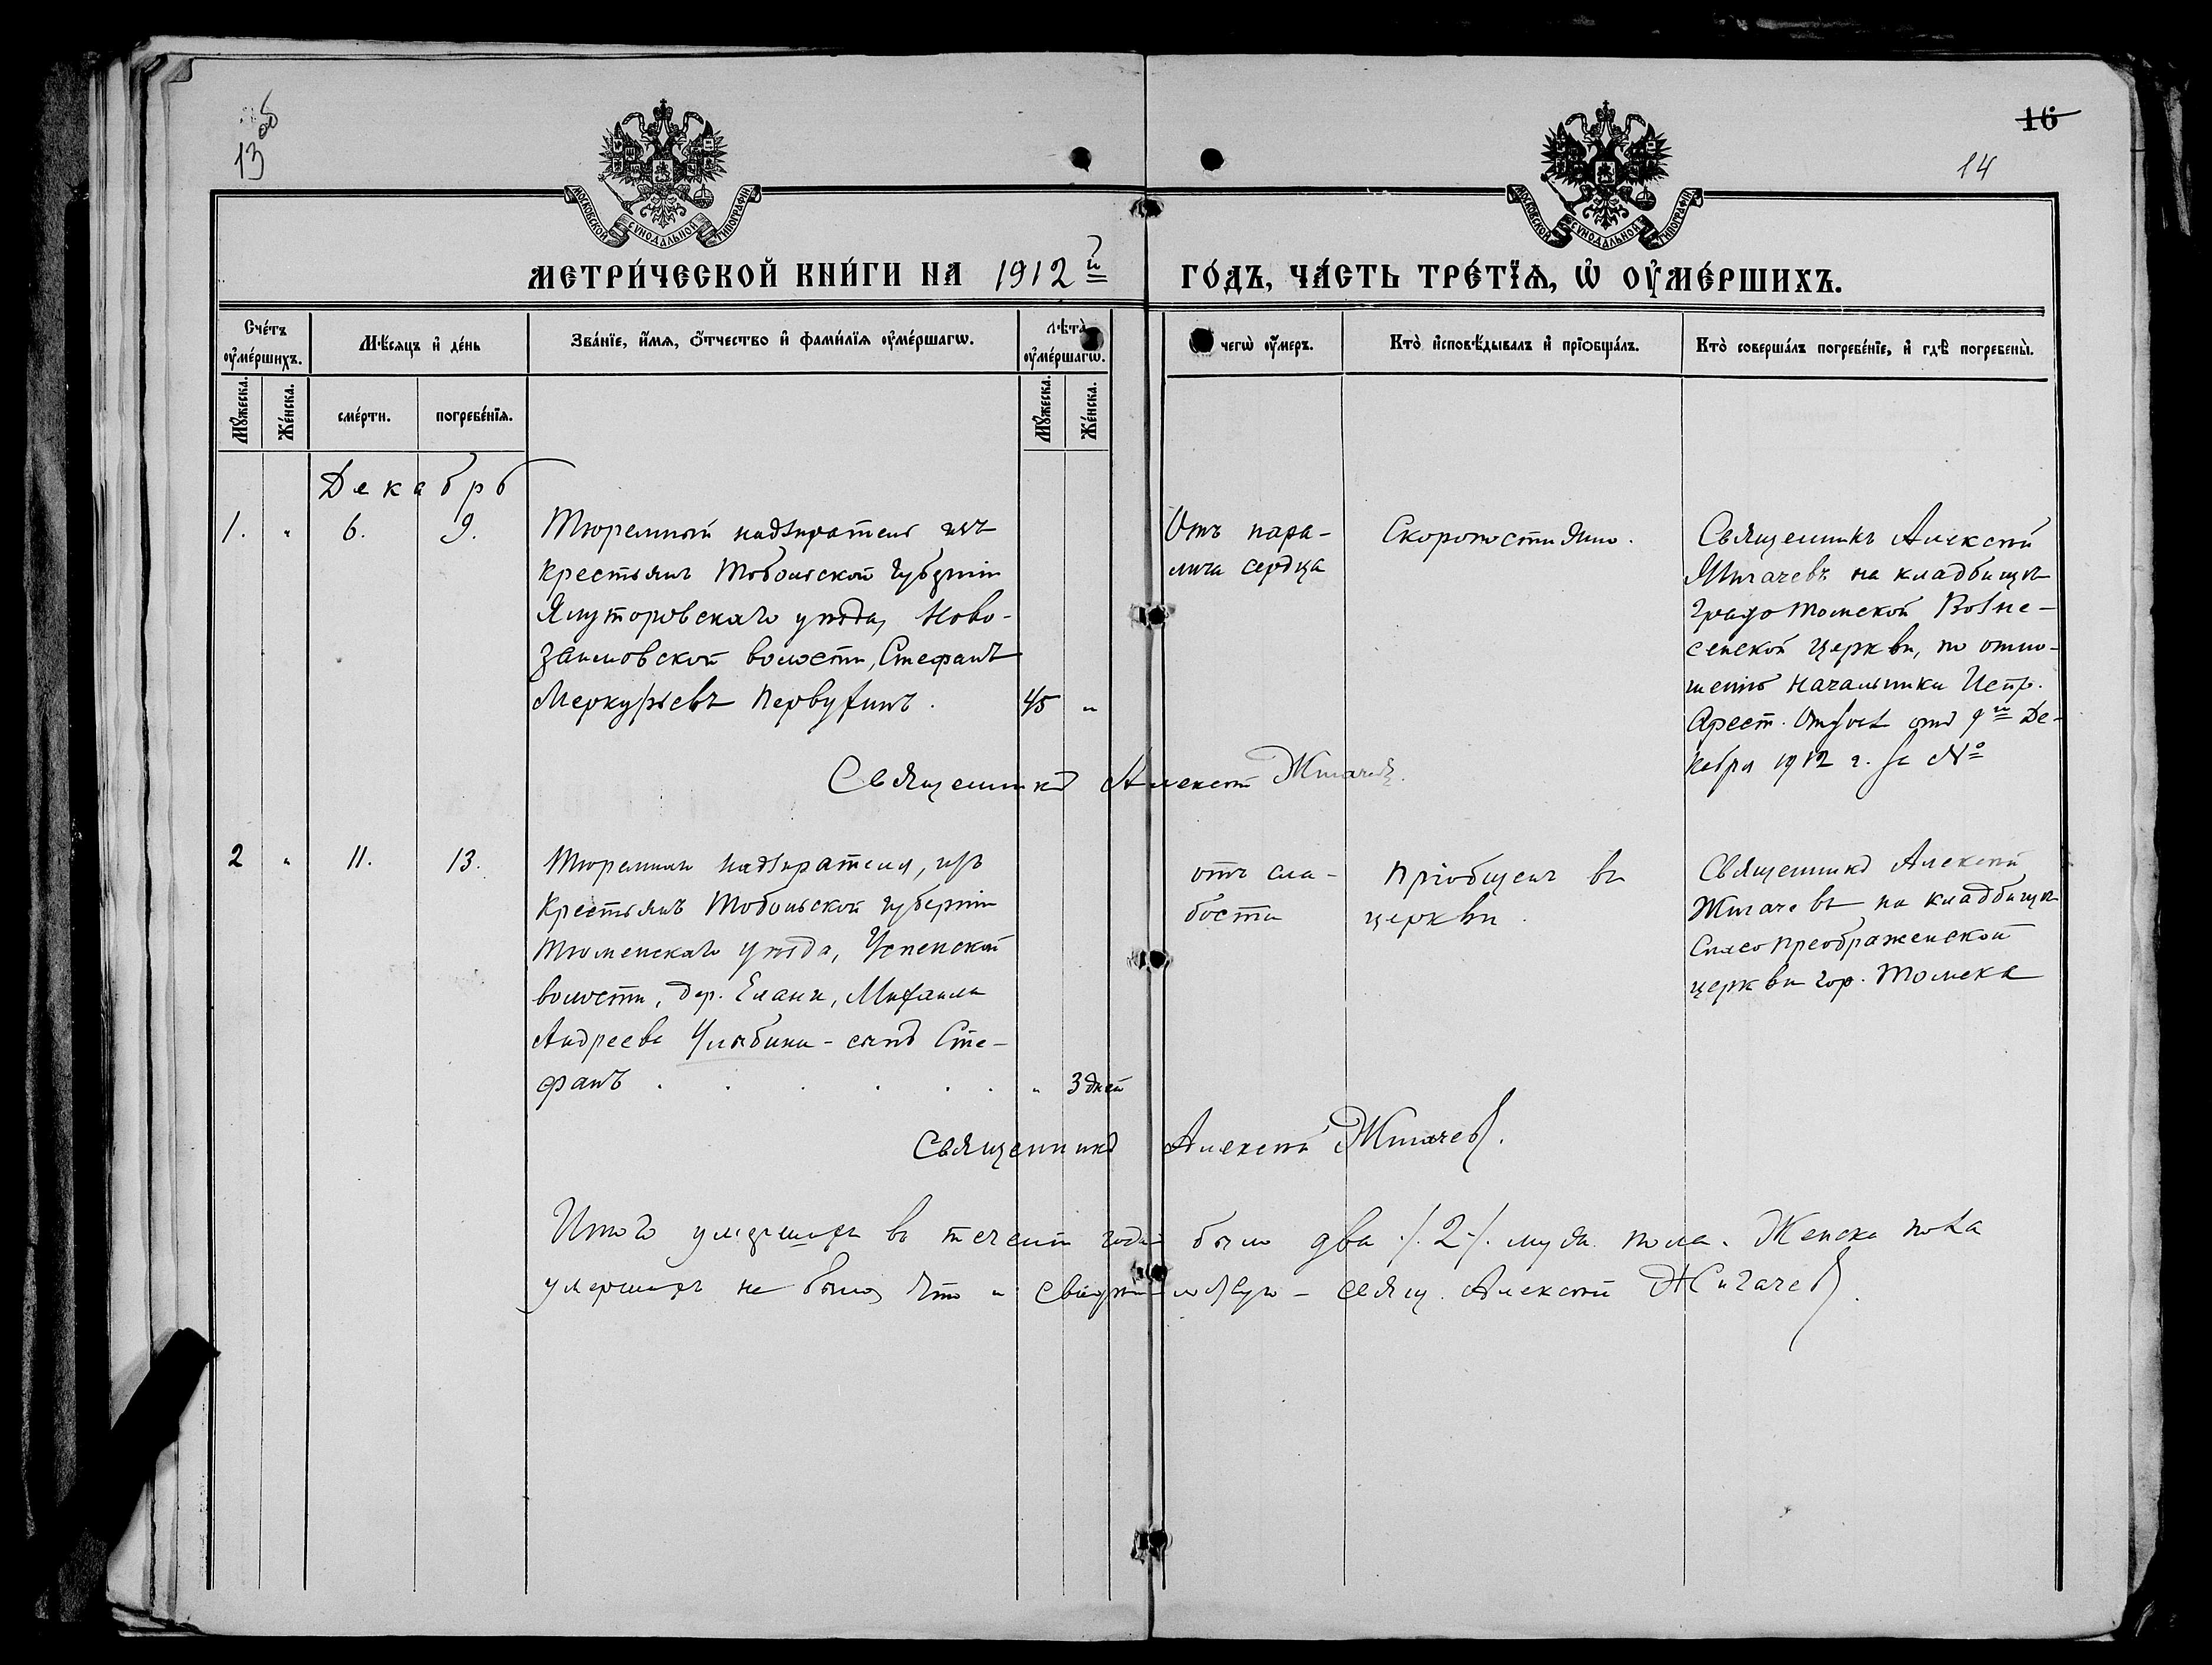 13 об
16
14
МОСКОВСКОЙ СУНОДАЛЬНОЙ ТИПОГРАФІИ
МОСКОВСКОЙ СУНОДАЛЬНОЙ ТИПОГРАФІИ
МЕТРИ́ЧЕСКОЙ КНИ́ГИ НА 1912й ГО́ДЪ, ЧА́СТЬ ТРЕ́ТЇѦ, Ѡ҆ ОУ҆МЕ́РШИХЪ.
Сче́тъ оу҆ме́ршихъ.
Мѣ́сяцъ и҆ де́нь
Зва́нїе, и҆́мѧ, ѻ҆́тчество и҆ фами́лїѧ оу҆ме́ршагѡ.
лѣ́та оу҆ме́ршагѡ.
чегѡ̀ оу҆́меръ.
Кто̀ и҆сповѣ́дывалъ и҆ прїѡбща́лъ.
Кто̀ соверша́лъ погребе́нїе, и҆ гдѣ̀ погребены̀.
Мꙋ́жеска.
Же́нска.
сме́рти.
погребе́нїѧ.
Мꙋ́жеска.
Же́нска.
Декабрь
1. " 6. 9.
Тюремный надзиратель изъ
крестьянъ Тобольской губерніи
Ялуторовскаго уѣзда, Ново-
заимовской волости, Стефанъ
Меркурьевъ Первухинъ. 45 "
Отъ пара-
лича сердца
Скоропостижно.
Священникъ Алексѣй
Жигачевъ на кладбищѣ
градо Томской Возне-
сенской церкви, по отно-
шенію Начальника Испр.
Арест. Отдѣл. отъ 9го Де-
кабря 1912 г. за №
Священникъ Алексѣй Жигачевъ.
2 " 11. 13.
Тюремнаго надзирателя, изъ
крестьянъ Тобольской губерніи
Тюменскаго уѣзда, Успенской
волости, дер. Елани, Михаила
Андреева Улыбина - сынъ Сте-
фанъ . . . . . . " 3 дней
отъ сла-
бости
Пріобщенъ въ
церкви.
Священникъ Алексѣй
Жигачевъ на кладбищѣ
Спасо Преображенской
церкви гор. Томска
Священникъ Алексѣй Жигачевъ.
Итого умершихъ въ теченіи года было два ./.2./. муж. пола. Женска пола
умершихъ не было, что и свидѣтельствую - свящ. Алексѣй Жигачевъ.